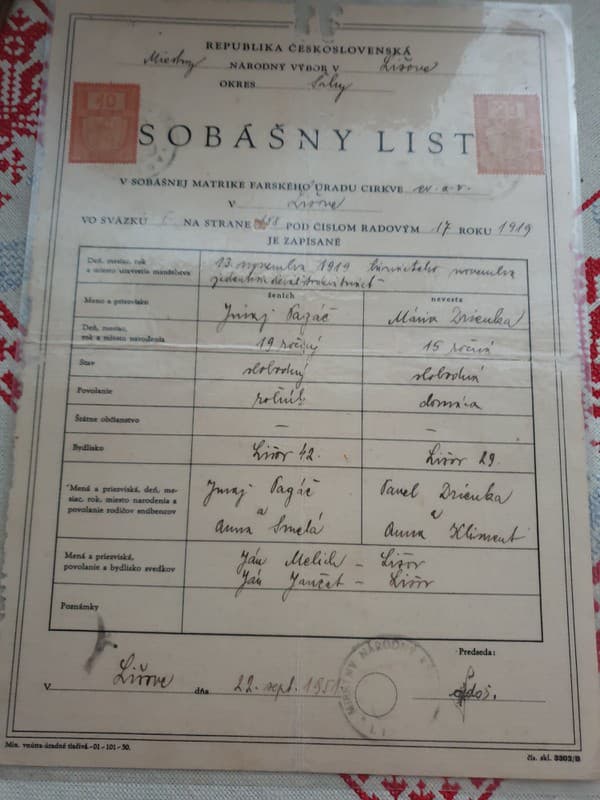 REPUBLIKA ČESKOSLOVENSKÁ
Miestny NÁRODNÝ VÝBOR V Lišove
OKRES Šahy
SOBÁŠNY LIST
V SOBÁŠNEJ MATRIKE FARSKÉHO ÚRADU CIRKVE ev. a. v.
V Lišove
VO SVÄZKU NA STRANE POD ČÍSLOM RADOVÝM 17 ROKU 1919
JE ZAPÍSANÉ
Deň, mesiac, rok
a miesto uzavretia manželstva
13. novembra 1919 novembra
ženích nevesta
Meno a priezvisko Juraj Pagáč Mária Drienka
Deň, mesiac,
rok a miesto narodenia 19 ročný 15 ročná
Stav slobodný slobodná
Povolanie roľník domáca
Štátne občianstvo — —
Bydlisko Lišov 42. Lišov 29.
Mená a priezviská, deň, me-
siac, rok, miesto narodenia a
povolanie rodičov snúbencov
Juraj Pagáč Pavel Drienka
a a
Anna Smelá Anna Kliment
Mená a priezviská,
povolanie a bydlisko svedkov
Ján Melich – Lišov
Ján Jančat – Lišov
Poznámky
MIESTNY NÁRODNÝ
Predseda:
V Lišove dňa 22. sept. 1951
Min. vnútra-úradné tlačivá.-01-101-50. čís. skl. 3303/B